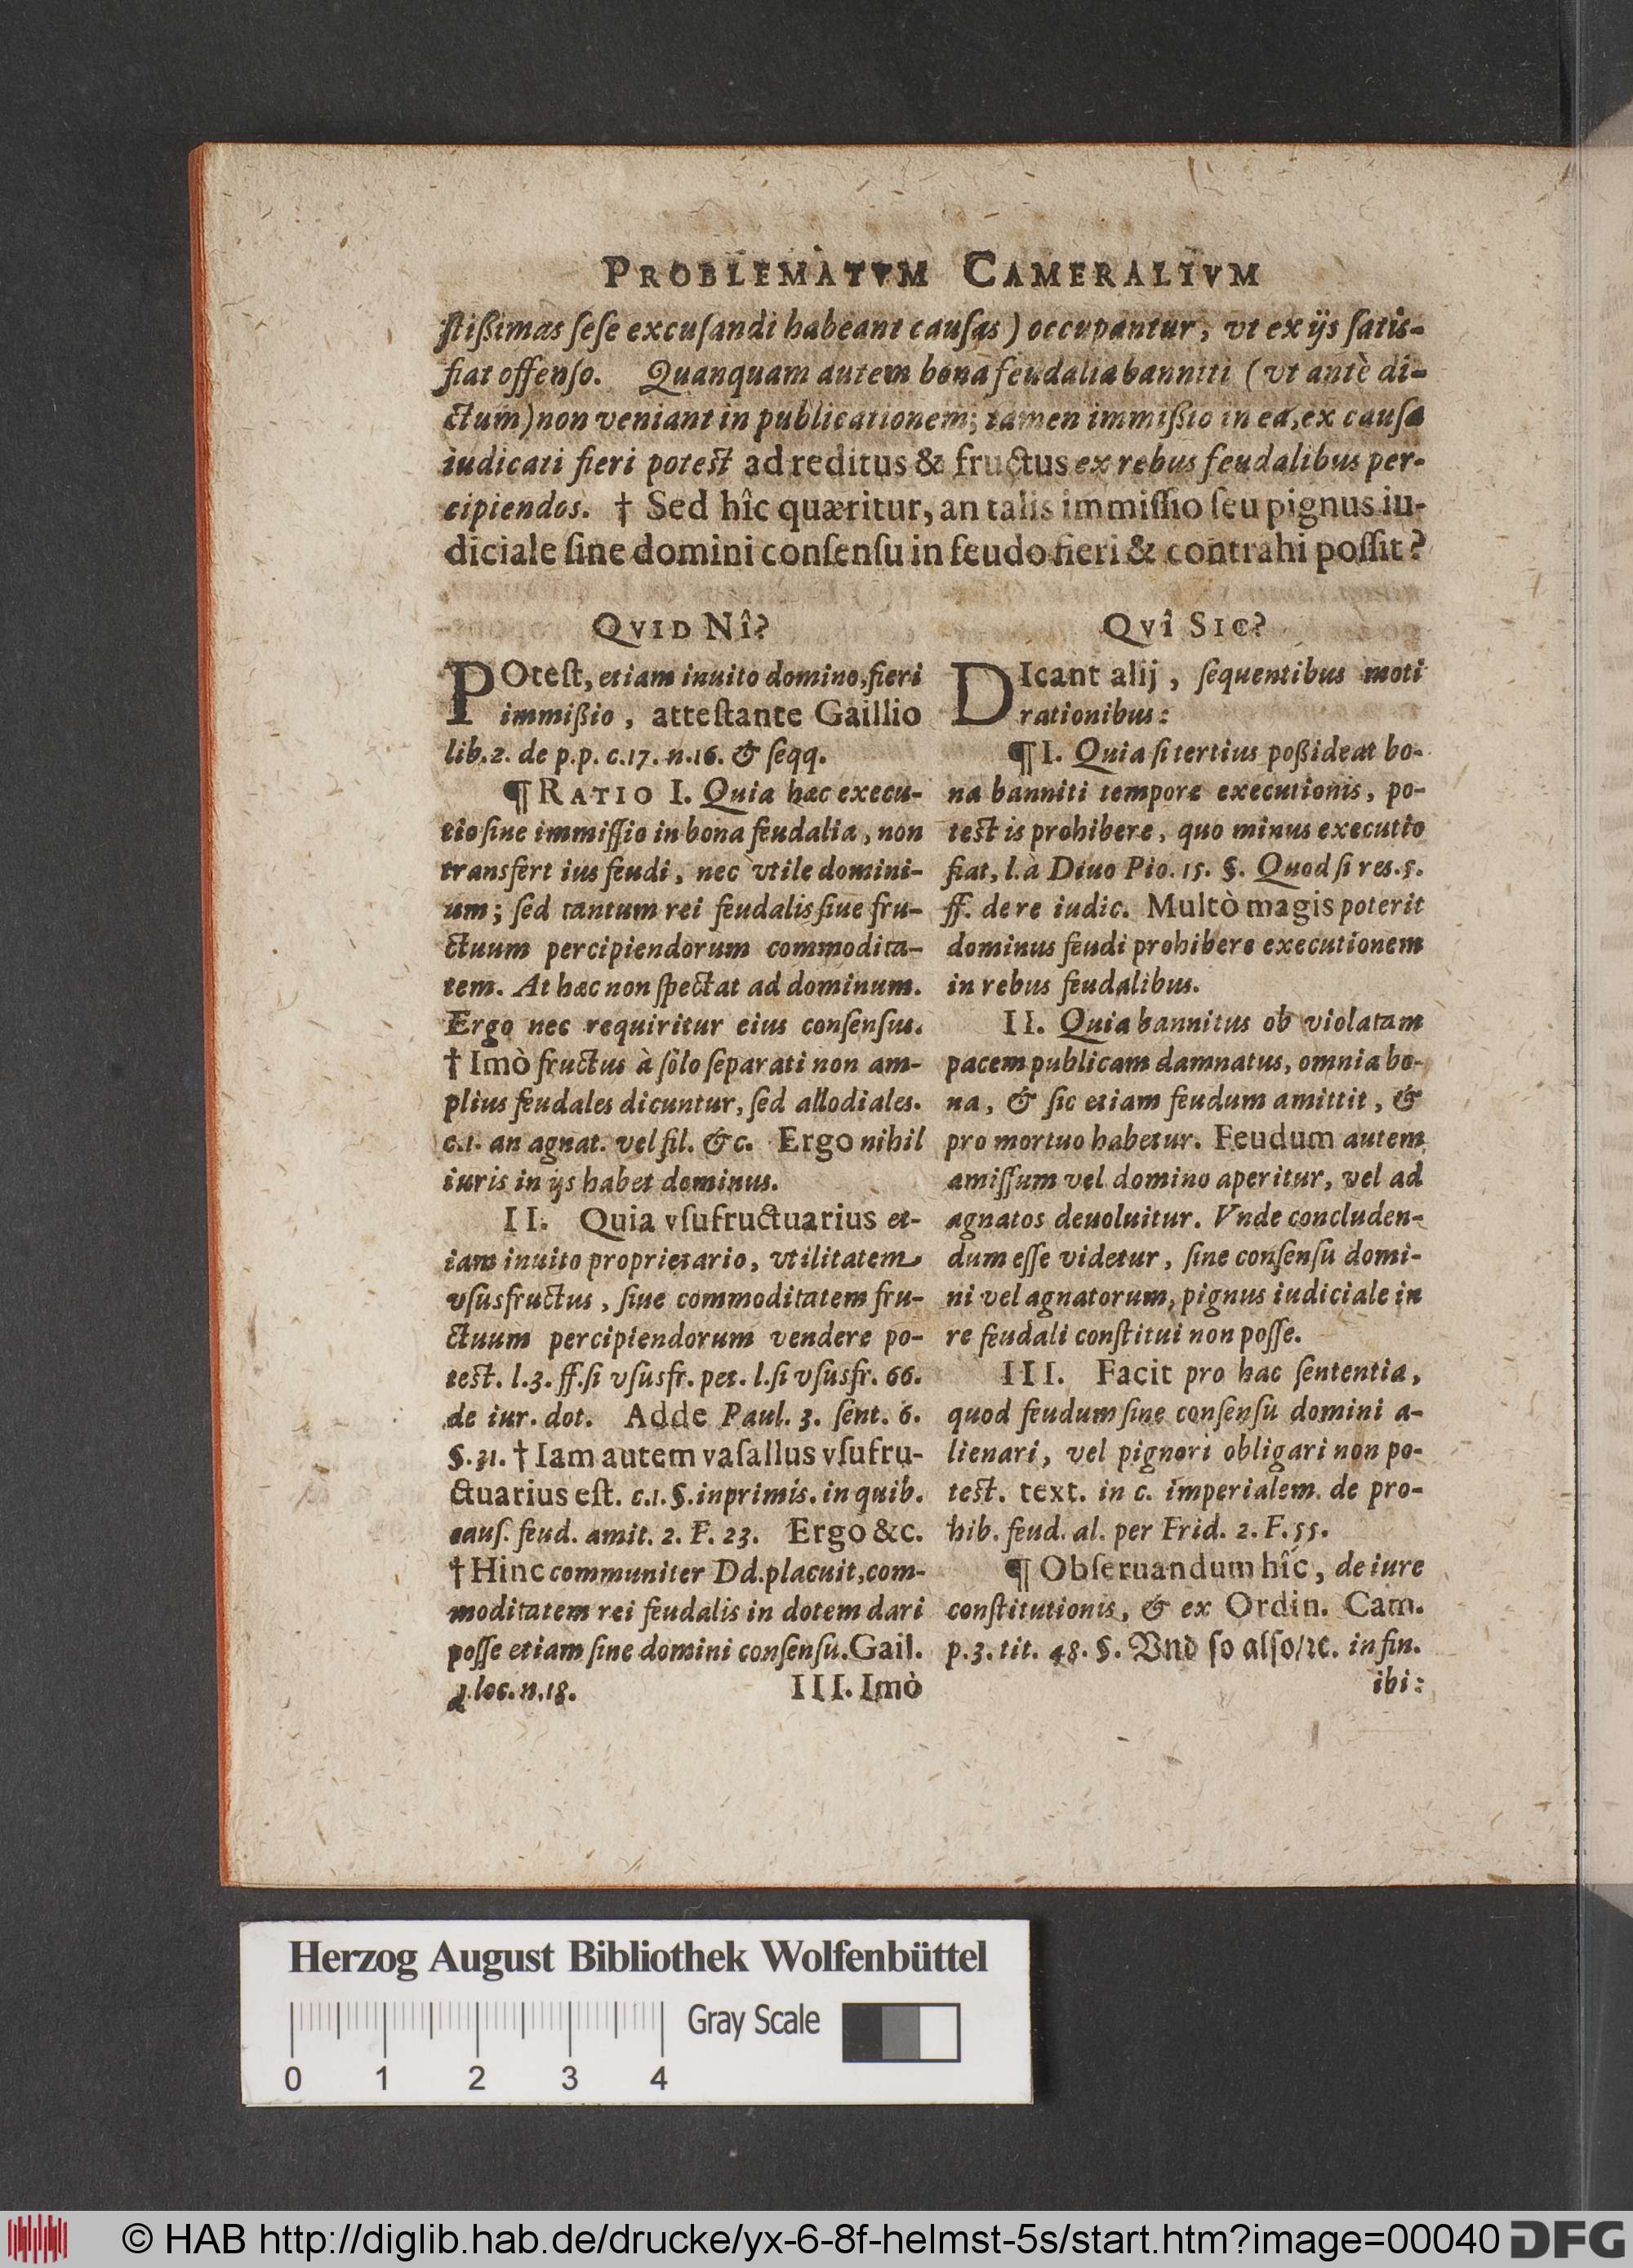 PROBLEMATVM CAMERALIVM
ſtißimas ſeſe excuſandi habeant cauſas) occupantur, vt ex ijs ſatis-
fiat offenſo. Quanquam autem bona feudalia banniti (vt antè di-
ctum) non veniant in publicationem; tamen immißio in ea, ex cauſa
iudicati fieri potest ad reditus & fructus ex rebus feudalibus per-
cipiendos. † Sed hîc quæritur, an talis immiſſio ſeu pignus iu-
diciale ſine domini conſenſu in feudo fieri & contrahi poſſit?
QVID Nî?
POteſt, etiam inuito domino, fieri
immißio, atteſtante Gaillio
lib. 2. de p.p. c. 17. n. 16. & ſeqq.
¶ RATIO I. Quia hæc execu-
tio ſine immiſſio in bona feudalia, non
transfert ius feudi, nec vtile domini-
um; ſed tantum rei feudalis ſiue fru-
ctuum percipiendorum commodita-
tem. At hæc non ſpectat ad dominum.
Ergo nec requiritur eius conſenſus.
† Imò fructus à ſolo ſeparati non am-
plius feudales dicuntur, ſed allodiales.
c. 1. an agnat. vel fil. &c. Ergo nihil
iuris in ijs habet dominus.
II. Quia vſufructuarius et-
iam inuito proprietario, vtilitatem
vſusfructus, ſiue commoditatem fru-
ctuum percipiendorum vendere po-
test. l. 3. ff. ſi vſusfr. pet. l. ſi vſusfr. 66.
de iur. dot. Adde Paul. 3. ſent. 6.
§. 31. † Iam autem vaſallus vſufru-
ctuarius eſt. c. 1. §. inprimis. in quib.
cauſ. feud. amit. 2. F. 23. Ergo &c.
† Hinc communiter Dd. placuit, com-
moditatem rei feudalis in dotem dari
poſſe etiam ſine domini conſenſu. Gail.
d. loc. n. 18.
III. Imò
QVî SIC?
DIcant alij, ſequentibus moti
rationibus:
¶ I. Quia ſi tertius poßideat bo-
na banniti tempore executionis, po-
test is prohibere, quo minus executio
fiat, l. à Diuo Pio. 15. §. Quod ſi res. 5.
ff. de re iudic. Multò magis poterit
dominus feudi prohibere executionem
in rebus feudalibus.
II. Quia bannitus ob violatam
pacem publicam damnatus, omnia bo-
na, & ſic etiam feudum amittit, &
pro mortuo habetur. Feudum autem
amiſſum vel domino aperitur, vel ad
agnatos deuoluitur. Vnde concluden-
dum eſſe videtur, ſine conſenſu domi-
ni vel agnatorum, pignus iudiciale in
re feudali conſtitui non poſſe.
III. Facit pro hac ſententia,
quod feudum ſine conſenſu domini a-
lienari, vel pignori obligari non po-
test. text. in c. imperialem. de pro-
hib. feud. al. per Frid. 2. F. 55.
¶ Obſeruandum hîc, de iure
conſtitutionis, & ex Ordin. Cam.
p. 3. tit. 48. §. Vnd ſo alſo/ꝛc. in fin.
ibi:
Herzog August Bibliothek Wolfenbüttel
Gray Scale
0 1 2 3 4
© HAB http://diglib.hab.de/drucke/yx-6-8f-helmst-5s/start.htm?image=00040 DFG